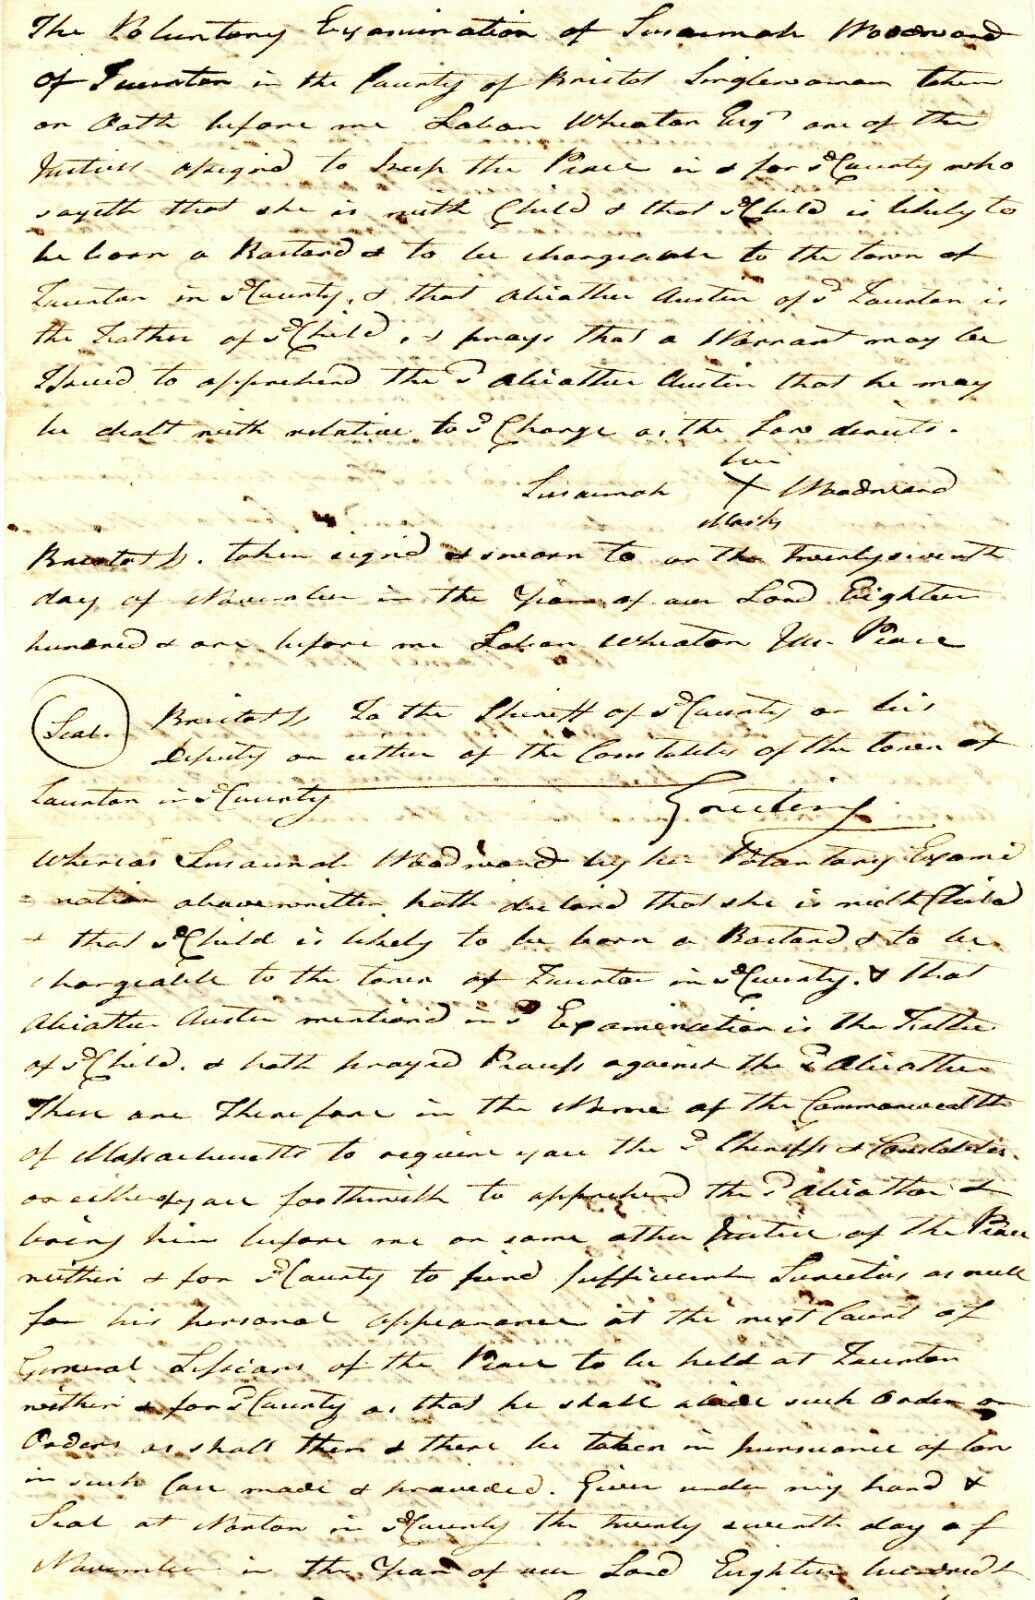 The Voluntary Examination of Susannah Woodward
of Taunton in the County of Bristol Singlewoman taken
on Oath before me Laban Wheaton Esqr one of the
Justices assigned to keep the Peace in & for sd County who
sayeth that she is with Child & that sd Child is likely to
be born a Bastard & to be chargeable to the town of
Taunton in sd County, & that Abiather Austin of sd Taunton is
the Father of sd Child, & prays that a Warrant may be
Issued to apprehend the sd Abiather Austin that he may
be dealt with relative to sd Charge as the Law directs.
her
Susannah X Woodward
Mark
Bristol Ss. taken signd & sworn to on the twenty seventh
day of November in the Year of our Lord Eighteen
hundred & one before me Laban Wheaton Jus. Peace
Seal. Bristol Ss To the Sheriff of sd County or his
Deputy or either of the Constables of the town of
Taunton in sd County Greeting
Whereas Susannah Woodward by her Voluntary Exami
= nation above written hath declard that she is with Child
& that sd Child is likely to be born a Bastard & to be
chargeable to the town of Taunton in sd County. & that
Abiather Austin mentiond in sd Examination is the Father
of sd Child. & hath prayed Process against the sd Abiather
These are Therefore in the Name of the Commonwealth
of Massachusetts to require you the sd Sheriffs & Constables.
or either of you forthwith to apprehend the sd Abiather &
bring him before me or some other Justice of the Peace
within & for sd County to find sufficient Sureties as well
for his personal appearance at the next Court of
General Sessions of the Peace to be held at Taunton
within & for sd County as that he shall abide such Order or
Orders as shall then & there be taken in pursuance of law
in such Case made & provided. Given under my hand &
Seal at Norton in sd County the twenty seventh day of
November in the Year of our Lord Eighteen hundred &